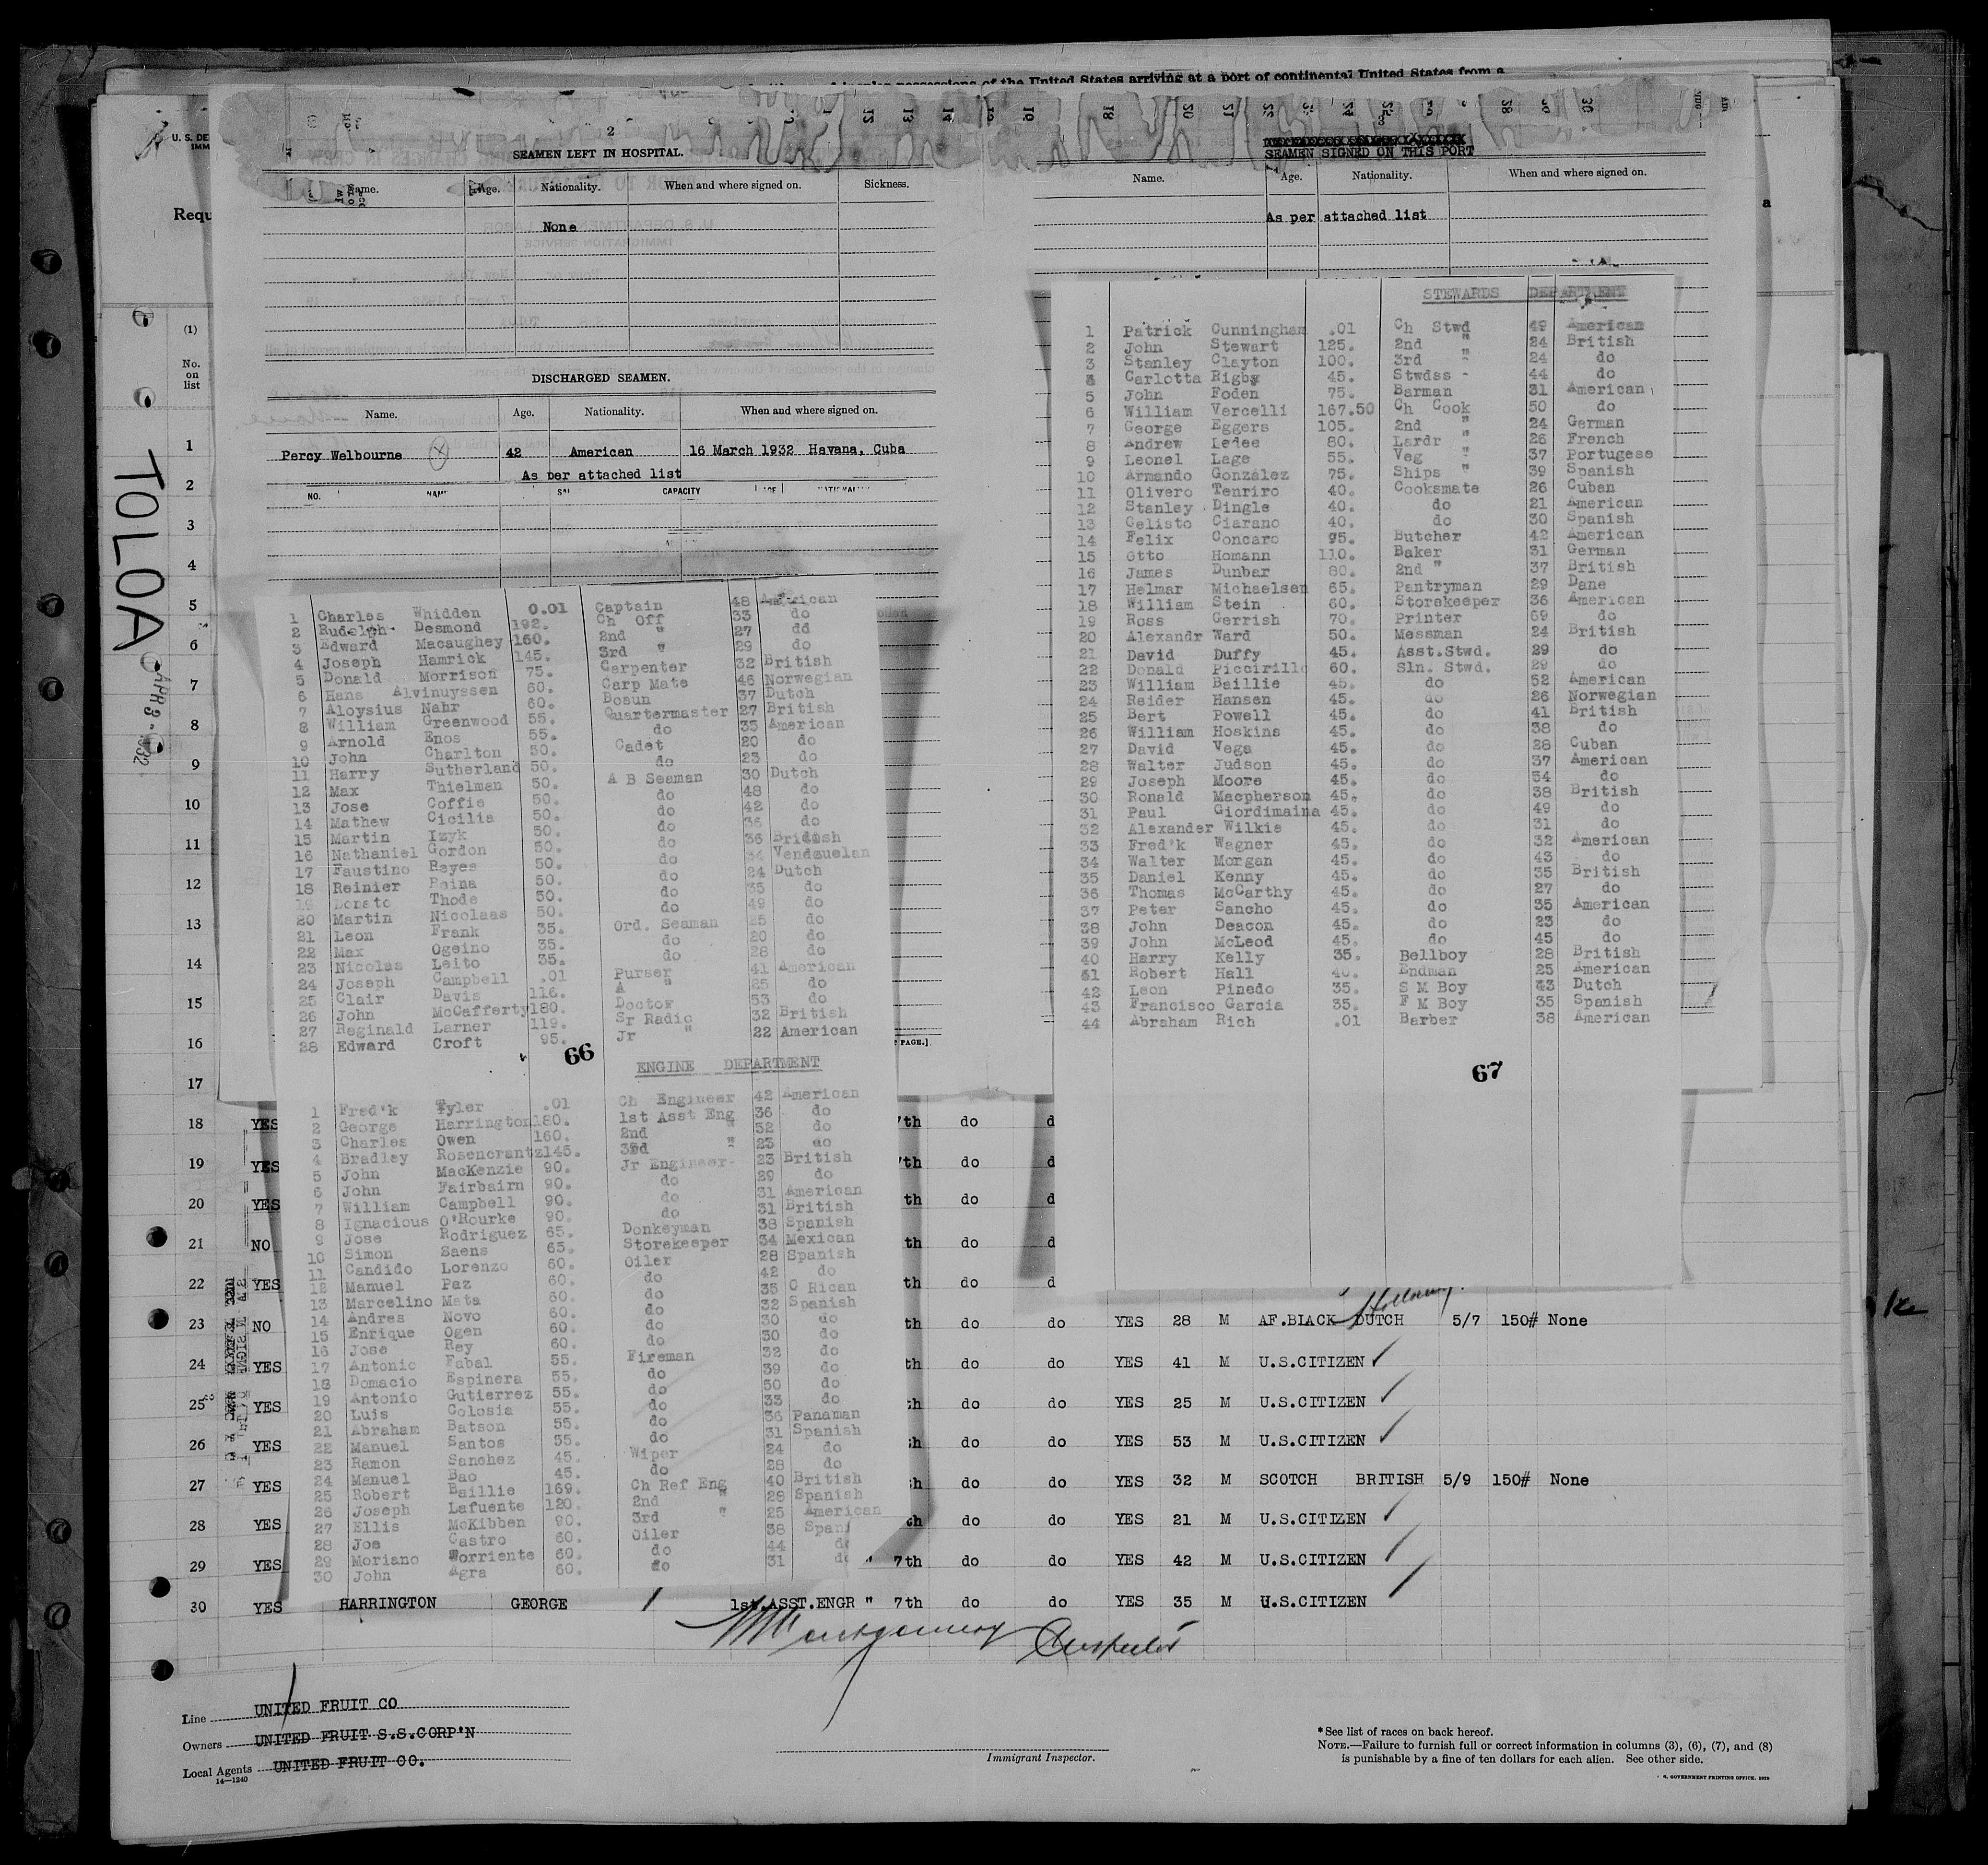 insular possessions of the United States arriving at a port of continental United States from a
U. S. DE
IMM
Requ
(1)
No.
on
list
TOLOA
APR 3 - 1932
2
SEAMEN LEFT IN HOSPITAL.
Name. Age. Nationality. When and where signed on. Sickness.
None
DISCHARGED SEAMEN.
Name. Age. Nationality. When and where signed on.
Percy Welbourne 42 American 16 March 1932 Havana, Cuba
As per attached list
NO. NAME SAL CAPACITY AGE NATIONALITY
1 Charles Whidden 0.01 Captain 48 American
2 Rudolph Desmond 192. Ch Off 33 do
3 Edward Macaughey 160. 2nd " 27 dd
4 Joseph Hamrick 145. 3rd " 29 do
5 Donald Morrison 75. Carpenter 32 British
6 Hans Alvinuyssen 60. Carp Mate 46 Norwegian
7 Aloysius Nahr 60. Bosun 37 Dutch
8 William Greenwood 55. Quartermaster 27 British
9 Arnold Enos 55. do 35 American
10 John Charlton 50. Cadet 20 do
11 Harry Sutherland 50. do 23 do
12 Max Thielman 50. A B Seaman 30 Dutch
13 Jose Coffie 50. do 48 do
14 Mathew Cicilia 50. do 42 do
15 Martin Izyk 50. do 36 do
16 Nathaniel Gordon 50. do 36 British
17 Faustino Reyes 50. do 34 Venezuelan
18 Reinier Reina 50. do 24 Dutch
19 Donato Thode 50. do 35 do
20 Martin Nicolaas 50. do 49 do
21 Leon Frank 35. Ord. Seaman 25 do
22 Max Ogeino 35. do 20 do
23 Nicolas Leito 35. do 28 do
24 Joseph Campbell .01 Purser 41 American
25 Clair Davis 116. A " 25 do
26 John McCafferty 180. Doctor 53 do
27 Reginald Larner 119. Sr Radio 32 British
28 Edward Croft 95. Jr " 22 American
66
ENGINE DEPARTMENT
1 Fred'k Tyler .01 Ch Engineer 42 American
2 George Harrington 180. 1st Asst Eng 36 do
3 Charles Owen 160. 2nd " 52 do
4 Bradley Rosencrantz 145. 3rd " 23 do
5 John MacKenzie 90. Jr Engineer 23 British
6 John Fairbairn 90. do 29 do
7 William Campbell 90. do 31 American
8 Ignacious O'Rourke 90. do 31 British
9 Jose Rodriguez 65. Donkeyman 38 Spanish
10 Simon Saens 65. Storekeeper 34 Mexican
11 Candido Lorenzo 60. Oiler 28 Spanish
12 Manuel Paz 60. do 42 do
13 Marcelino Mata 60. do 35 C Rican
14 Andres Novo 60. do 32 Spanish
15 Enrique Ogen 60. do 30 do
16 Jose Rey 60. do 30 do
17 Antonio Fabal 55. Fireman 32 do
18 Domacio Espinera 55. do 39 do
19 Antonio Gutierrez 55. do 50 do
20 Luis Colosia 55. do 33 do
21 Abraham Batson 55. do 36 Panaman
22 Manuel Santos 55. do 31 Spanish
23 Ramon Sanchez 45. Wiper 24 do
24 Manuel Bao 45. do 28 do
25 Robert Baillie 169. Ch Ref Eng 40 British
26 Joseph Lafuente 120. 2nd " 28 Spanish
27 Ellis McKibben 90. 3rd " 25 American
28 Joe Castro 60. Oiler 38 Span
29 Moriano Worriente 60. do 44 do
30 John Agra 60. do 31 do
SEAMEN SIGNED ON THIS PORT
Name. Age. Nationality. When and where signed on.
As per attached list
STEWARDS DEPARTMENT
1 Patrick Cunningham .01 Ch Stwd 49 American
2 John Stewart 125. 2nd " 24 British
3 Stanley Clayton 100. 3rd " 24 do
4 Carlotta Rigby 45. Stwdss - 44 do
5 John Foden 75. Barman 31 American
6 William Vercelli 167.50 Ch Cook 50 do
7 George Eggers 105. 2nd " 24 German
8 Andrew Ledee 80. Lardr " 26 French
9 Leonel Lage 55. Veg " 37 Portugese
10 Armando González 75. Ships " 39 Spanish
11 Olivero Tenriro 40. Cooksmate 26 Cuban
12 Stanley Dingle 40. do 21 American
13 Celisto Ciarano 40. do 30 Spanish
14 Felix Concaro 95. Butcher 42 American
15 Otto Homann 110. Baker 31 German
16 James Dunbar 80. 2nd " 37 British
17 Helmar Michaelsen 65. Pantryman 29 Dane
18 William Stein 60. Storekeeper 36 American
19 Ross Gerrish 70. Printer 69 do
20 Alexandr Ward 50. Messman 24 British
21 David Duffy 45. Asst.Stwd. 29 do
22 Donald Piccirillo 60. Sln. Stwd. 29 do
23 William Baillie 45. do 52 American
24 Reider Hansen 45. do 26 Norwegian
25 Bert Powell 45. do 41 British
26 William Hoskins 45. do 38 do
27 David Vega 45. do 28 Cuban
28 Walter Judson 45. do 37 American
29 Joseph Moore 45. do 54 do
30 Ronald Macpherson 45. do 38 British
31 Paul Giordimaina 45. do 49 do
32 Alexander Wilkie 45. do 31 do
33 Fred'k Wagner 45. do 32 American
34 Walter Morgan 45. do 43 do
35 Daniel Kenny 45. do 35 British
36 Thomas McCarthy 45. do 27 do
37 Peter Sancho 45. do 35 American
38 John Deacon 45. do 23 do
39 John McLeod 45. do 45 do
40 Harry Kelly 35. Bellboy 28 British
41 Robert Hall 40. Endman 25 American
42 Leon Pinedo 35. S M Boy 43 Dutch
43 Francisco Garcia 35. F M Boy 35 Spanish
44 Abraham Rich .01 Barber 38 American
67
PAGE.]
1
2
3
4
5
6
7
8
9
10
11
12
13
14
15
16
17
18 YES 7th do d
19 YES 7th do d
20 YES th do d
21 NO th do d
22 YES th do d
23 NO th do do YES 28 M AF.BLACK DUTCH 5/7 150# None
24 YES th do do YES 41 M U.S.CITIZEN
25 YES th do do YES 25 M U.S.CITIZEN
26 YES th do do YES 53 M U.S.CITIZEN
27 YES h do do YES 32 M SCOTCH BRITISH 5/9 150# None
28 YES th do do YES 21 M U.S.CITIZEN
29 YES " 7th do do YES 42 M U.S.CITIZEN
30 YES HARRINGTON GEORGE 1st.ASST.ENGR " 7th do do YES 35 M U.S.CITIZEN
Montgomery Inspector
Line UNITED FRUIT CO
Owners UNITED FRUIT S.S.CORP'N
Local Agents UNITED FRUIT CO.
14—1240
Immigrant Inspector.
*See list of races on back hereof.
NOTE.—Failure to furnish full or correct information in columns (3), (6), (7), and (8)
is punishable by a fine of ten dollars for each alien. See other side.
GOVERNMENT PRINTING OFFICE